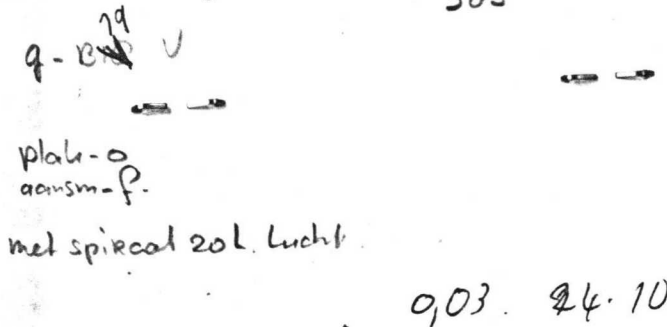 q -
plak-o
aansm-f.
met spiraal 20 L. lucht.
0,03. 24.10